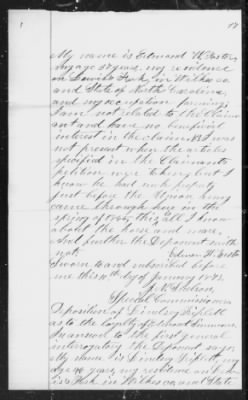 My name is Edmund W. Foster
my age 58 years, my residence
on Lewis Fork, in Wilkes co
and State of North Carolina
and my occupation farming,
I am not related to the Claim
ant and have no beneficial
interest in the claim. I was
not present when the articles
specified in the Claimants
petition were taken, but I
know he had such property
just before the Union army
came through here in the
spring of 1865, this all I know
about the horse and mare.
And further the Deponent saith
not. Edmund W. Foster
Sworn to and subscribed before
me this day of January 1873.
Special Commissioner
Deposition of Linsley Triplett
as to the loyalty of
In answer to the first general
interrogatory the Deponent says,
My name is Linsley Triplett, my
age years, my residence on Lew
is Fork in Wilkes co, and State